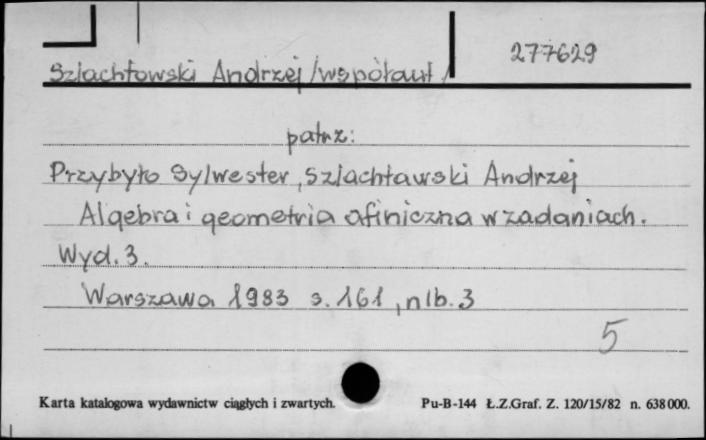 277629
Szlachtowski Andrzej /współaut/
patrz:
Przybyło Sylwester, Szlachtawski Andrzej
Algebra i geometria afiniczna w zadaniach.
Wyd. 3.
Warszawa 1983 s. 161, nlb. 3
5
Karta katalogowa wydawnictw ciągłych i zwartych. Pu-B-144 Ł.Z.Graf. Z. 120/15/82 n. 638000.